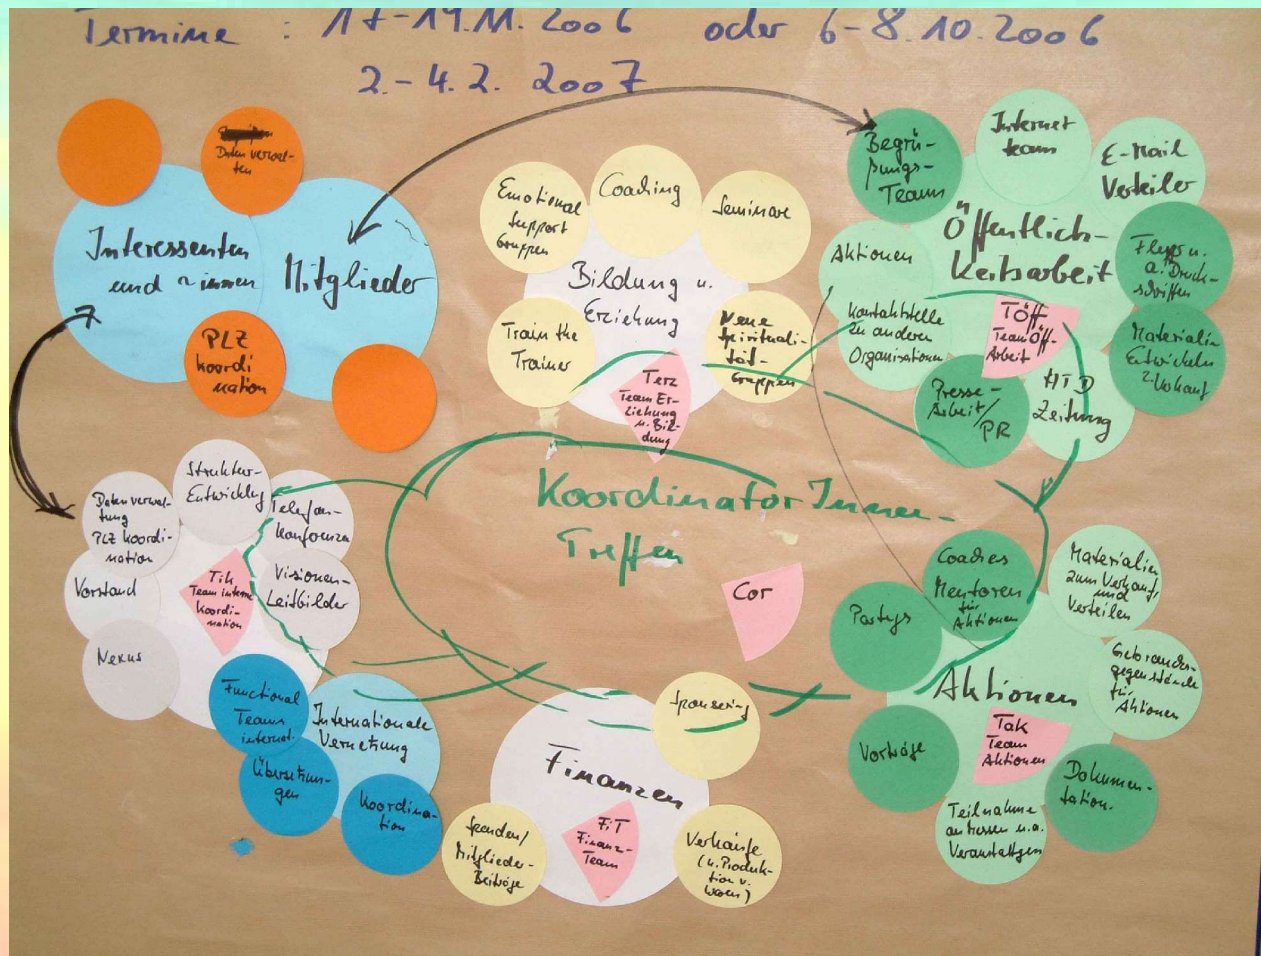 Termine : 17-19.11.2006 oder 6-8.10.2006
2.-4.2. 2007
Daten verwal-
ten
Interessenten
und ~innen
Mitglieder
PLZ
koordi
nation
Emotional
Support
Gruppen
Coaching
Seminare
Bildung u.
Erziehung
Train the
Trainer
Neue
Spirituali-
tät-
Gruppen
Terz
Team Er-
ziehung
u. Bil-
dung
Begrü-
ßungs-
Team
Internet
team
E-Mail
Verteiler
Öffentlich-
keitsarbeit
Aktionen
Flyer u.
a. Druck-
schriften
Kontaktstelle
zu anderen
Organisationen
TÖff
Team Öff-
Arbeit
Materialien
Entwickeln
z. Verkauf
Presse-
Arbeit/
PR
HTD
Zeitung
KoordinatorInnen-
Treffen
Cor
Struktur-
Entwicklg
Daten verwal-
tung
PLZ Koordi-
nation
Telefon-
konferenzen
Vorstand
Tik
Team interne
Koordi-
nation
Visionen-
Leitbilder
Nexus
Functional
Teams
internet.
Internationale
Vernetzung
Übersetzun-
gen
Koordina-
tion
Sponsoring
Finanzen
FiT
Finanz-
Team
Spenden/
Mitglieder-
Beiträge
Verkäufe
(v. Produk-
tion v.
Waren)
Coaches
Mentoren
für
Aktionen
Materialien
zum Verkauf,
und
Verteilen
Partys
Gebrauchs-
gegenstände
für
Aktionen
Aktionen
Tak
Team
Aktionen
Vorträge
Dokumen-
tation.
Teilnahme
an Messen u.a.
Veranstaltgen